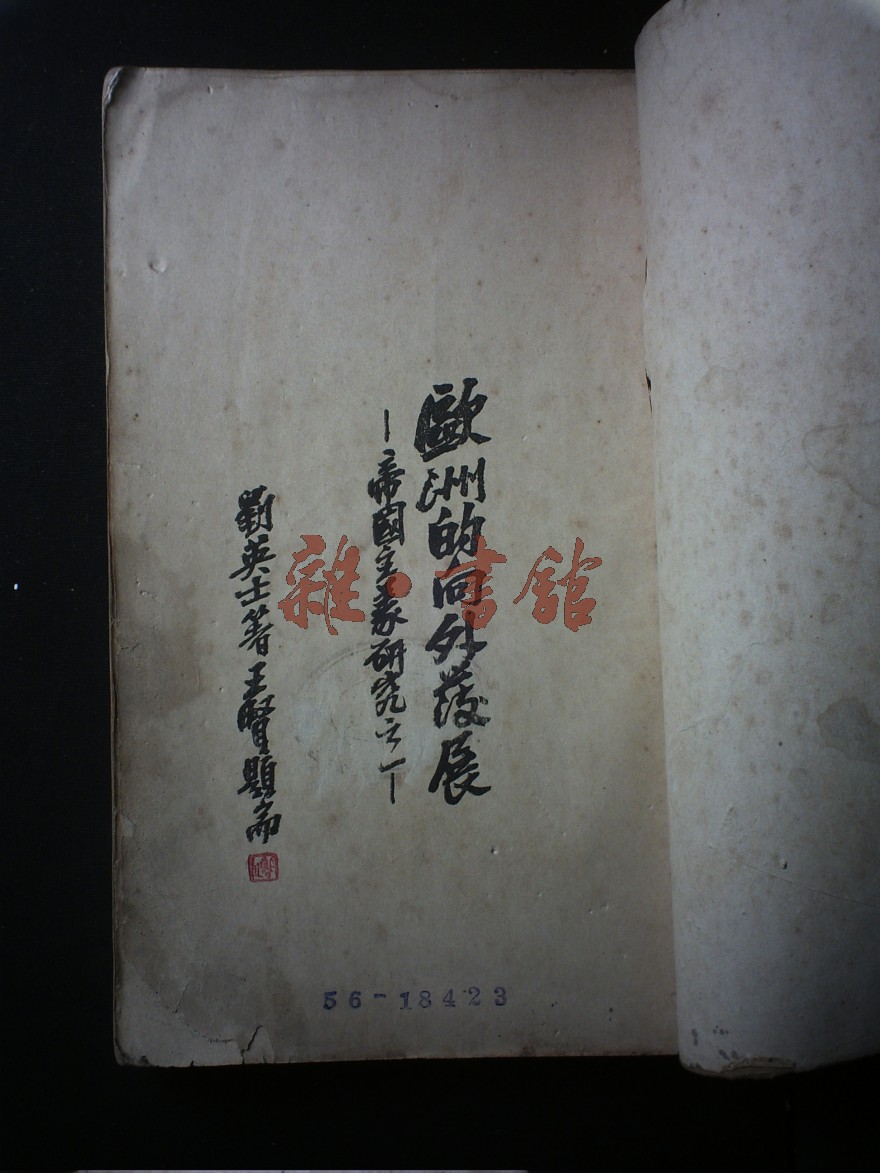 歐洲的向外發展
—帝國主義研究之一—
劉英士著 王賢題耑
雜·書館
56-18423